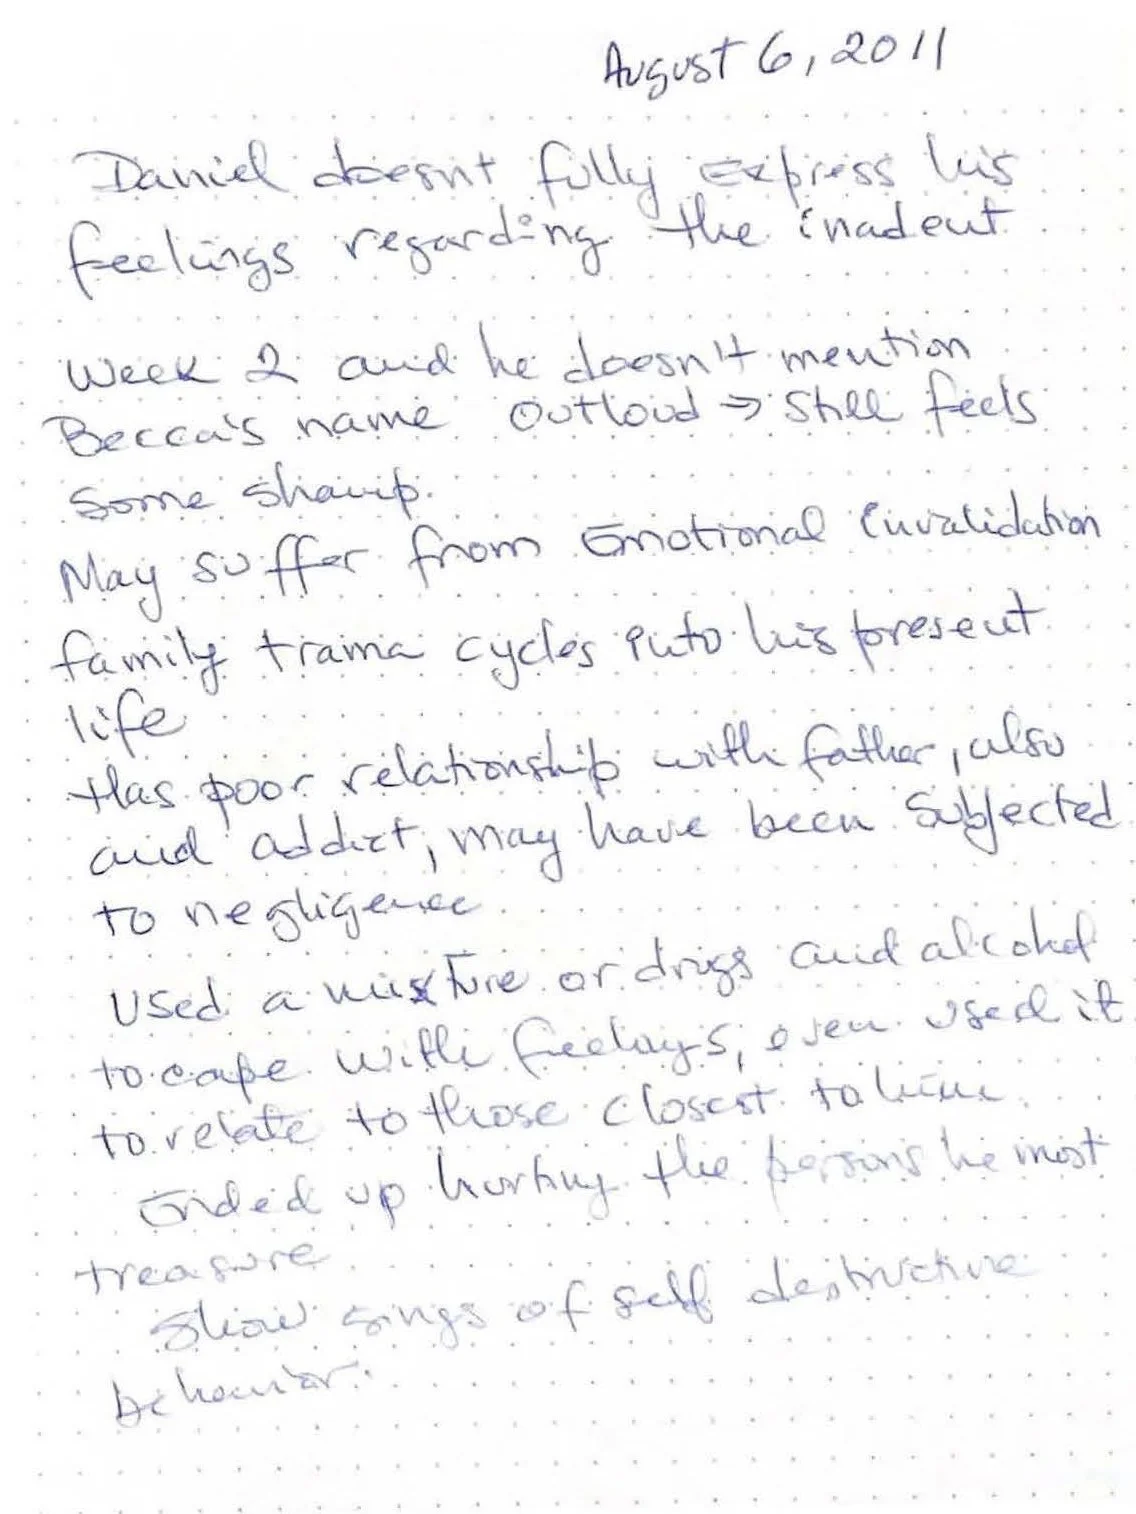 August 6, 2011
Daniel doesnt fully Express his
feelings regarding the inadent
Week 2 and he doesn't mention
Becca's name outloud → Still feels
Some sharp.
May suffer from Emotional invalidation
family trama cycles into his present
life
Has poor relationship with father, also
and addict, may have been Subjected
to negligence
Used a mixture or drugs and alcohol
to cope with feelings, even used it
to relate to those closest to him
Ended up hurting the persons he most
treasure
Show sings of self destructive
behavior.